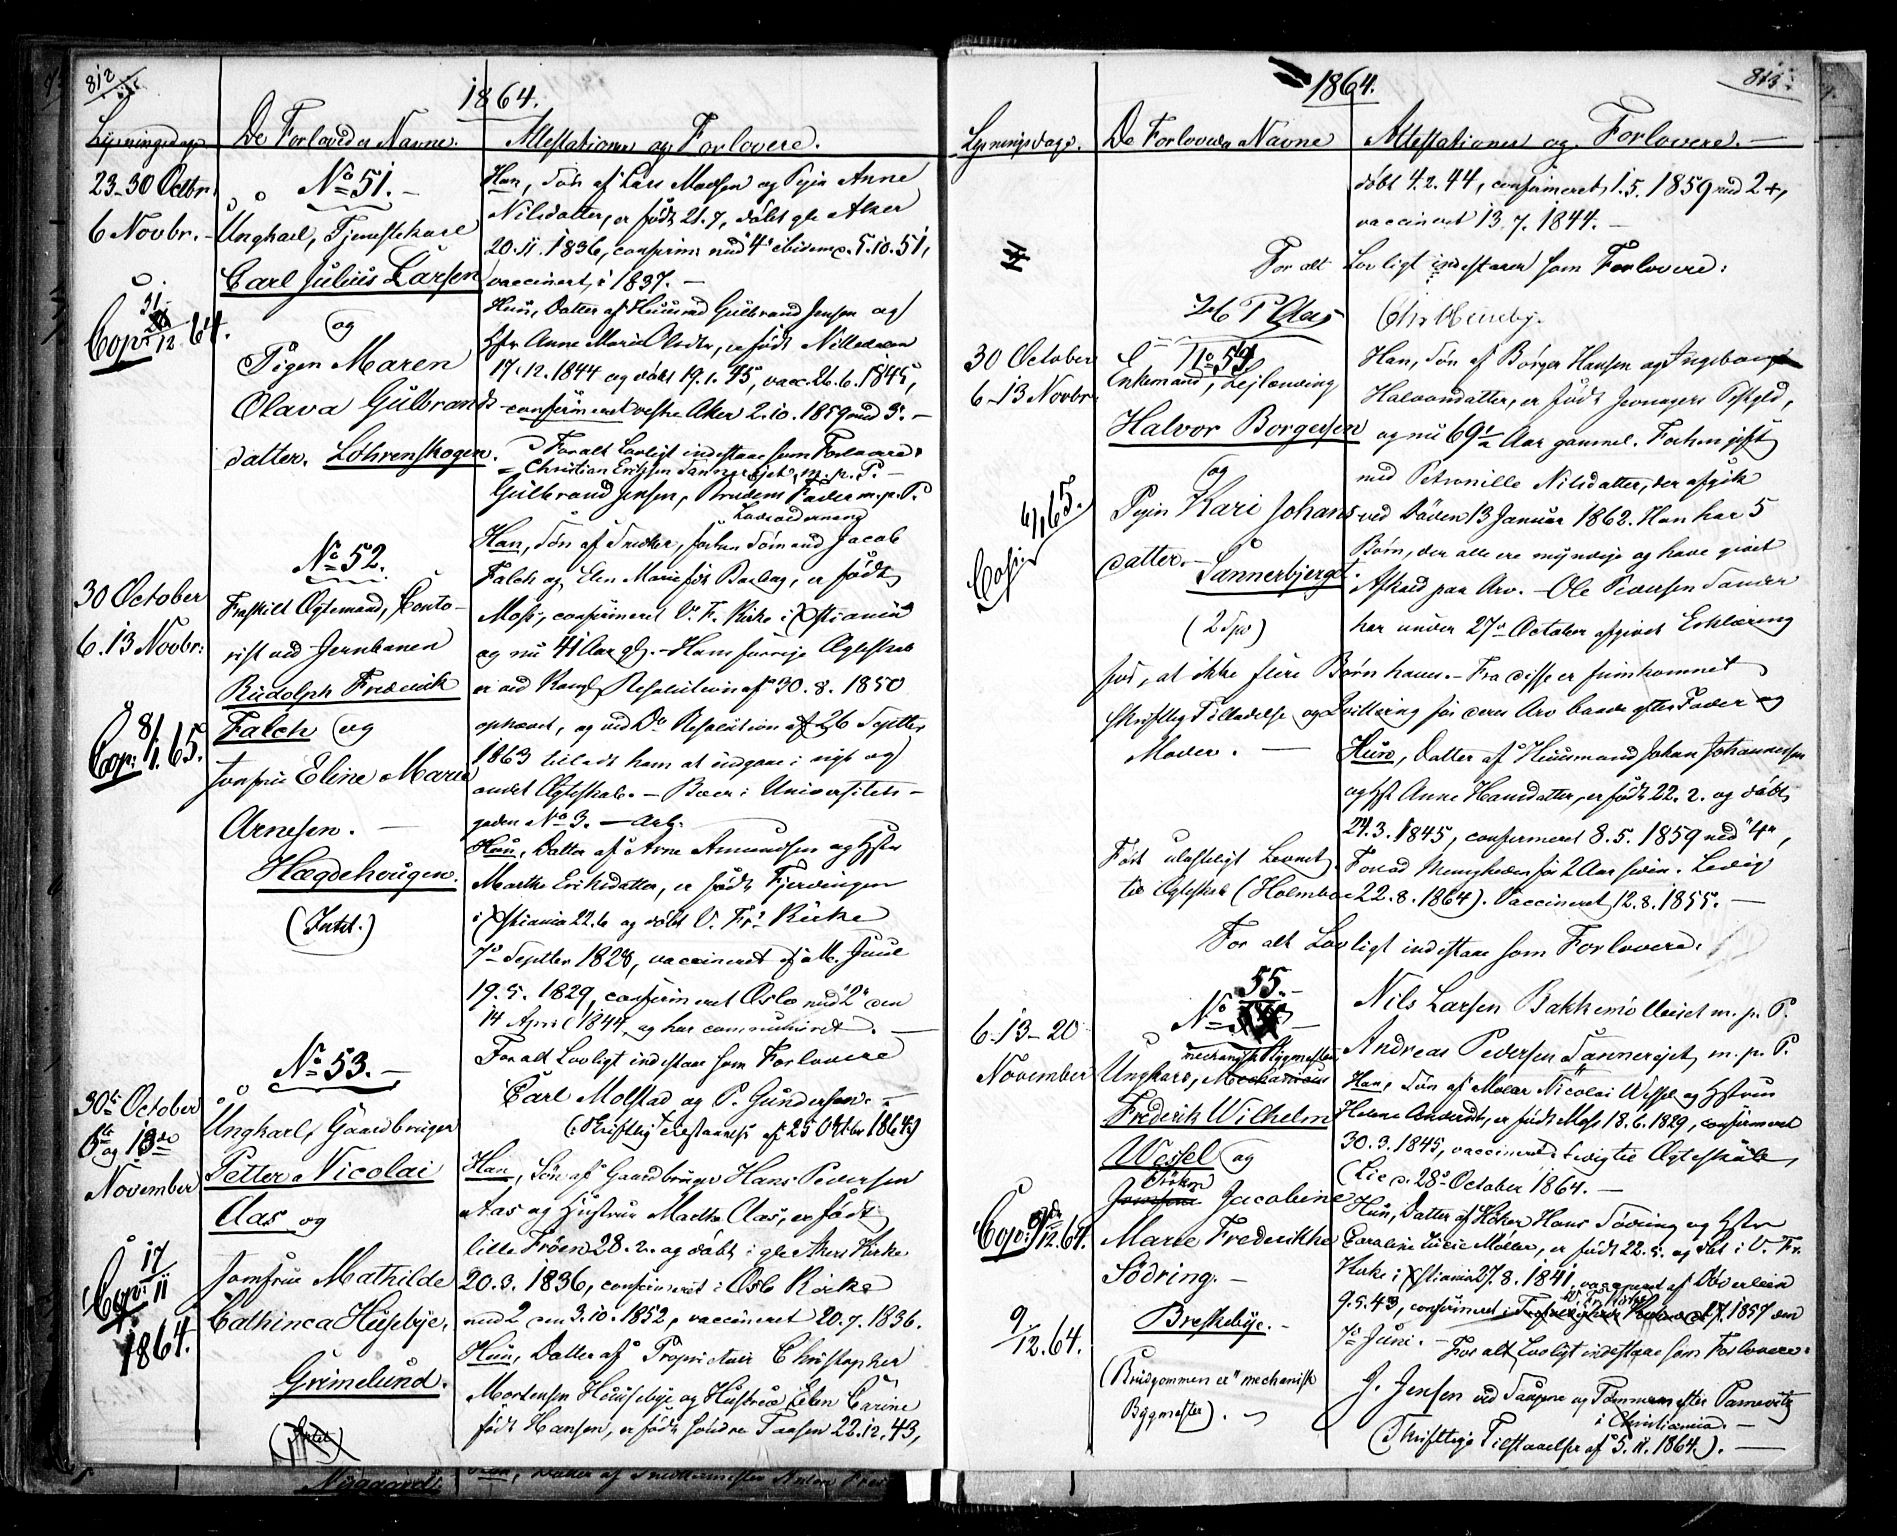 812
1864.
Lysningsdage
De Forlovedes Navne.
Attestationer og Forlovere.
23-30 Octbr.
6 Novbr.
Copv. 31/12 64.
No 51.
Ungkarl, Tjenestekarl
Carl Julius Larsen
og
Pigen Maren
Olava Gulbrands
datter. Løhrenskogen.
Han, Søn af Lars Madsen og Pigen Anne
Nilsdatter, er født 21.7, døbt gle Aker
20.11.1836, confirm. med "4" ibidem c. 5.10.51,
vaccineret i 1837. -
Hun, Datter af Huusmd Gulbrand Jensen og
Anne Marie Olsdtr, er født Nittedalen
17.12.1844 og døbt 19.1.45, vacc. 26.6.1845,
confirmeret vestre Aker 2.10.1859 med 3. -
For alt Lovligt indestaae som Forlovere
Christian Ericksen Tannerbjet, m.p.P. -
Gulbrand Jensen, Brudens Fader m.p.P.
30 October
6. 13 Novbr.
Cop. 8/1 65.
No 52.
Fraskilt Ægtemand, Conto-
rist ved Jernbanen
Rudolph Frederik
Falch og
Jomfru Eline Marie
Arnesen. -
Hægdehougen.
(Intet.)
Han, Søn af Snedker, Jacob
Falch og Elen Marie født Barbag, er født
Moss, confirmeret V. F. Kirke i Xstiania
og nu 41 Aar gl. - Hans forrige Ægteskab
er ved Kongl. Resolution af 30.8.1850
ophævet, og ved Do Resolution af 26 Septbr
1863 tilladt ham at indgaae i nyt og
andet Ægteskab. - Boer i Universitets-
gaden No 3. -
Hun, Datter af Arne Amundsen og Hstr
Marthe Eriksdatter, er født Fjerdingen
i Xstiania 22.6 og døbt V. Frs Kirke
7de Septber 1828, vaccineret af M. Juul
19.5.1829, confirmeret Oslo med "2" den
14 April 1844, og har communiceret. -
For alt Lovligt indestaae som Forlovere
Carl Molstad og P. Gundersen. -
(Skriftlig Tilstaaelse af 25 Octbr 1864)
30te October
6te og 13de
November
Copv. 17/11
1864.
No 53. -
Ungkarl, Gaardbruger
Petter Nicolai
Aas og
Jomfrue Mathilde
Cathinca Huseby,
Grimelund.
(Intet)
Han, Søn af Gaardbruger Hans Pedersen
Aas og Hustrue Marthe Aas, er født
lille Frøen 28.2. og døbt i gle Akers Kirke
20.3.1836, confirmeret i Oslo Kirke
med 2 den 3.10.1852, vaccineret 20.7.1836.
Hun, Datter af Proprietair Christopher
Mortensen Huuseby og Hustrue Elen Carine
født Hansen, er født søndre Taasen 22.12.43,
813
1864.
Lysningsdage.
De Forlovedes Navne
Attestationer og Forlovere. -
døbt 4.2.44, confirmeret 1.5.1859 med 2+,
vaccineret 13.7.1844. -
For alt Lovligt indestaaer som Forlovere:
P Aas
Chr Huuseby.
30 October
6-13 Novbr.
Copv. 6/1 65.
No 54
Enkemand, Lejlænding
Halvor Borgersen
og
Pigen Kari Johans
datter. -
Tannerbjerget.
(2 Spd)
Han, Søn af Børger Hansen og Ingeborg
Halvorsdatter, er født Jevnagers Pstgld,
og nu 69 1/2 Aar gammel. Forhen gift
med Petronille Nilsdatter, der afgik
ved Døden 13 Januar 1862. Han har 5
Børn, der alle ere myndige og have givet
Afkald paa Arv. - Ole Pedersen Sander
har under 27de October afgivet Erklæring
for, at ikke flere Børn haves. - Fra disse er fremkommet
skriftlig Tilladelse og Qvittering for deres Arv baade efter Fader og
Moder. -
Hun, Datter af Huusmand Johan Johannesen
og Hst Anne Hansdatter, er født 22.2. og døbt
24.3.1845, confirmeret 8.5.1859 med "4",
Ført ulasteligt Levnet. Forlod Menigheden for 2 Aar siden. Ledig
til Ægteskab (Holmboe 22.8.1864). Vaccineret 12.8.1855. -
For alt Lovligt indestaae som Forlovere:
Nils Larsen Bakkemøllerjet m.p.P.
Andreas Pedersen Tannerejet, m.p.P.
6-13-20
November
Copv. 9de/12 64.
9/12. 64.
55. -
No
mechanisk Bygmester
Ungkarl, Mechanicus
Frederik Wilhelm
Wessel og
Frøken
Jomfrue Jacobine
Marie Frederikke
Södring. -
Breskebye. -
(Brudgommen er "mechanisk
Bygmester). -
Han, Søn af Møller Nicolai Wessel og Hstrue
Helene Andersdt, er født Moss 18.6.1829, confirmeret
30.3.1845, vaccineret Ledig til Ægteskab,
(Lie d. 28de October 1864. -
Hun, Datter af Høker Hans Södring og Hstr
Caroline Lucie Møller, er født 22.5. og døbt i V. Fr.
Kirke i Xstiania 27.8.1841, vaccineret af Døderlein
9.5.43, confirmeret i 1857 den
7de Juni. - For alt Lovligt indestaae som Forlovere:
J. Jensen ved Taugene og Tømmermester Parnevitz
i Christiania. -
(Skriftlige Tilstaaelser af 5.11.1864). -